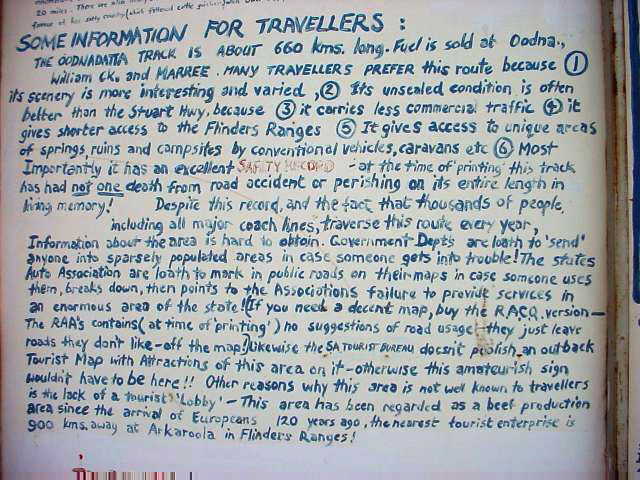 20 miles. There are also many
SOME INFORMATION FOR TRAVELLERS :
THE OODNADATTA TRACK IS ABOUT 660 kms. long. Fuel is sold at Oodna.,
William CK. and MARREE. MANY TRAVELLERS PREFER this route because ①
its scenery is more interesting and varied, ② Its unsealed condition is often
better than the Stuart Hwy, because ③ it carries less commercial traffic ④ it
gives shorter access to the Flinders Ranges ⑤ It gives access to unique areas
of springs, ruins and campsites by conventional vehicles, caravans etc ⑥ Most
Importantly it has an excellent SAFETY RECORD - at the time of 'printing' this track
has had not one death from road accident or perishing on its entire length in
living memory! Despite this record, and the fact that thousands of people,
including all major coach lines, traverse this route every year,
Information about the area is hard to obtain. Government Depts are loath to 'send'
anyone into sparsely populated areas in case someone gets into trouble! The states
Auto Association are loath to mark in public roads on their maps in case someone uses
them, breaks down, then points to the Associations failure to provide services in
an enormous area of the state! (If you need a decent map, buy the RACQ. version-
The RAA's contains (at time of 'printing') no suggestions of road usage! they just leave
roads they don't like - off the map!) Likewise the SA TOURIST BUREAU doesn't publish an outback
Tourist Map with Attractions of this area on it - otherwise this amateurish sign
wouldn't have to be here!! Other reasons why this area is not well known to travellers
is the lack of a tourist 'Lobby' - This area has been regarded as a beef production
area since the arrival of Europeans 120 years ago, the nearest tourist enterprise is
900 kms. away at Arkaroola in Flinders Ranges!